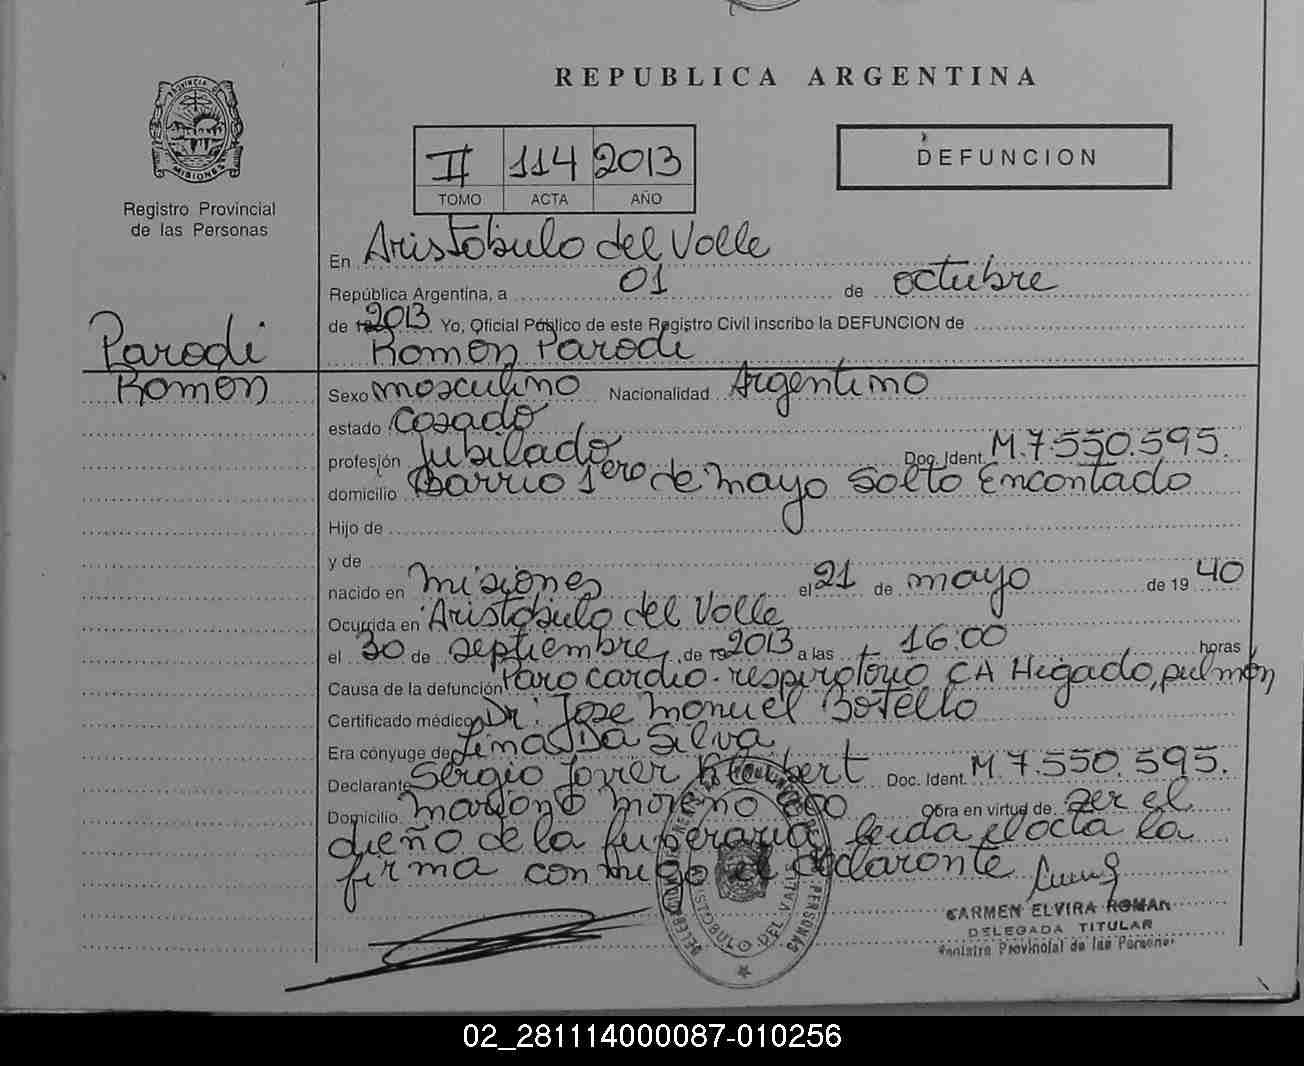 REPUBLICA ARGENTINA
PROVINCIA DE
MISIONES
Registro Provincial
de las Personas
II 114 2013
TOMO ACTA AÑO
DEFUNCION
En Aristobulo del Valle
República Argentina, a 01 de octubre
de 2013 Yo, Oficial Público de este Registro Civil inscribo la DEFUNCION de
Parodi
Ramon Parodi
Ramon
Sexo masculino Nacionalidad Argentino
estado Casado
profesión Jubilado Doc. Ident. M.7.550.595.
domicilio Barrio 1ero de mayo Salto Encantado
Hijo de
y de
nacido en misiones el 21 de mayo de 19 40
Ocurrida en Aristobulo del Valle
el 30 de septiembre de 2013 a las 16:00 horas
Causa de la defunción Paro cardio-respiratorio CA Higado, pulmon
Certificado médico Dr. Jose Manuel Botello
Era cónyuge de Da Silva
Declarante Sergio Javier Doc. Ident. M 7.550.595.
Domicilio mariano moreno Obra en virtud de ser el
dueño de la funeraria leida el acta la
firma conmigo el declarante
CARMEN ELVIRA ROMAN
DELEGADA TITULAR
Registro Provincial de las Personas
02_281114000087-010256